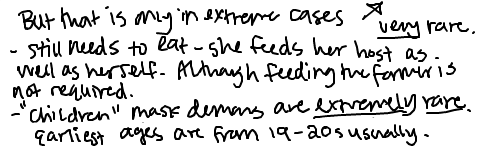 But that is only in extreme cases ↗ very rare.
- still needs to eat - she feeds her host as
well as herself. Although feeding the former is
not required.
- "children" mask demons are extremely rare.
earliest ages are from 19-20s usually.